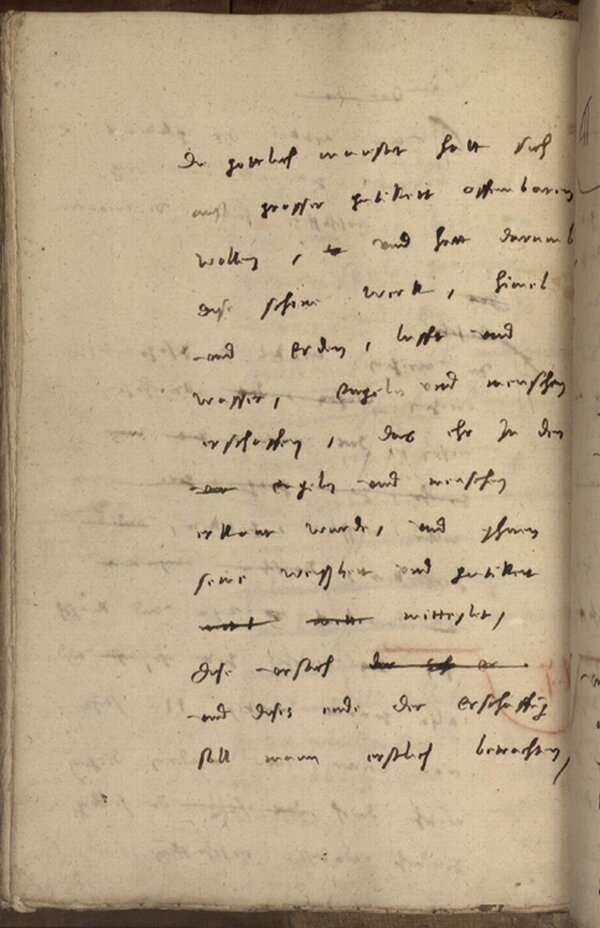 Die gottlich maiestet hatt sich
auß grosser gutikeit offenbaren
wollen, und hatt darumb
dise schöne werk, himel
und erden, lufft und
wasser, Engeln und menschen
erschaffen, das ehr In den
engeln und menschen
erkant wurde, und yhnen
seine weißheit und gutikeit
mitteylet,
Dise ursach
und dises ende der erschaffung
soll mann erstlich betrachten,